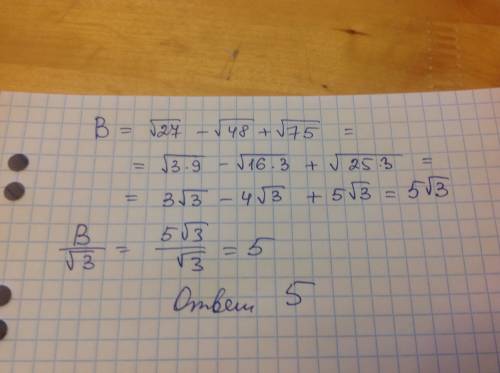 B = √27 - √48 + √75 =
= √3·9 - √16·3 + √25·3 =
= 3√3 - 4√3 + 5√3 = 5√3
B/√3 = 5√3/√3 = 5
Ответ 5